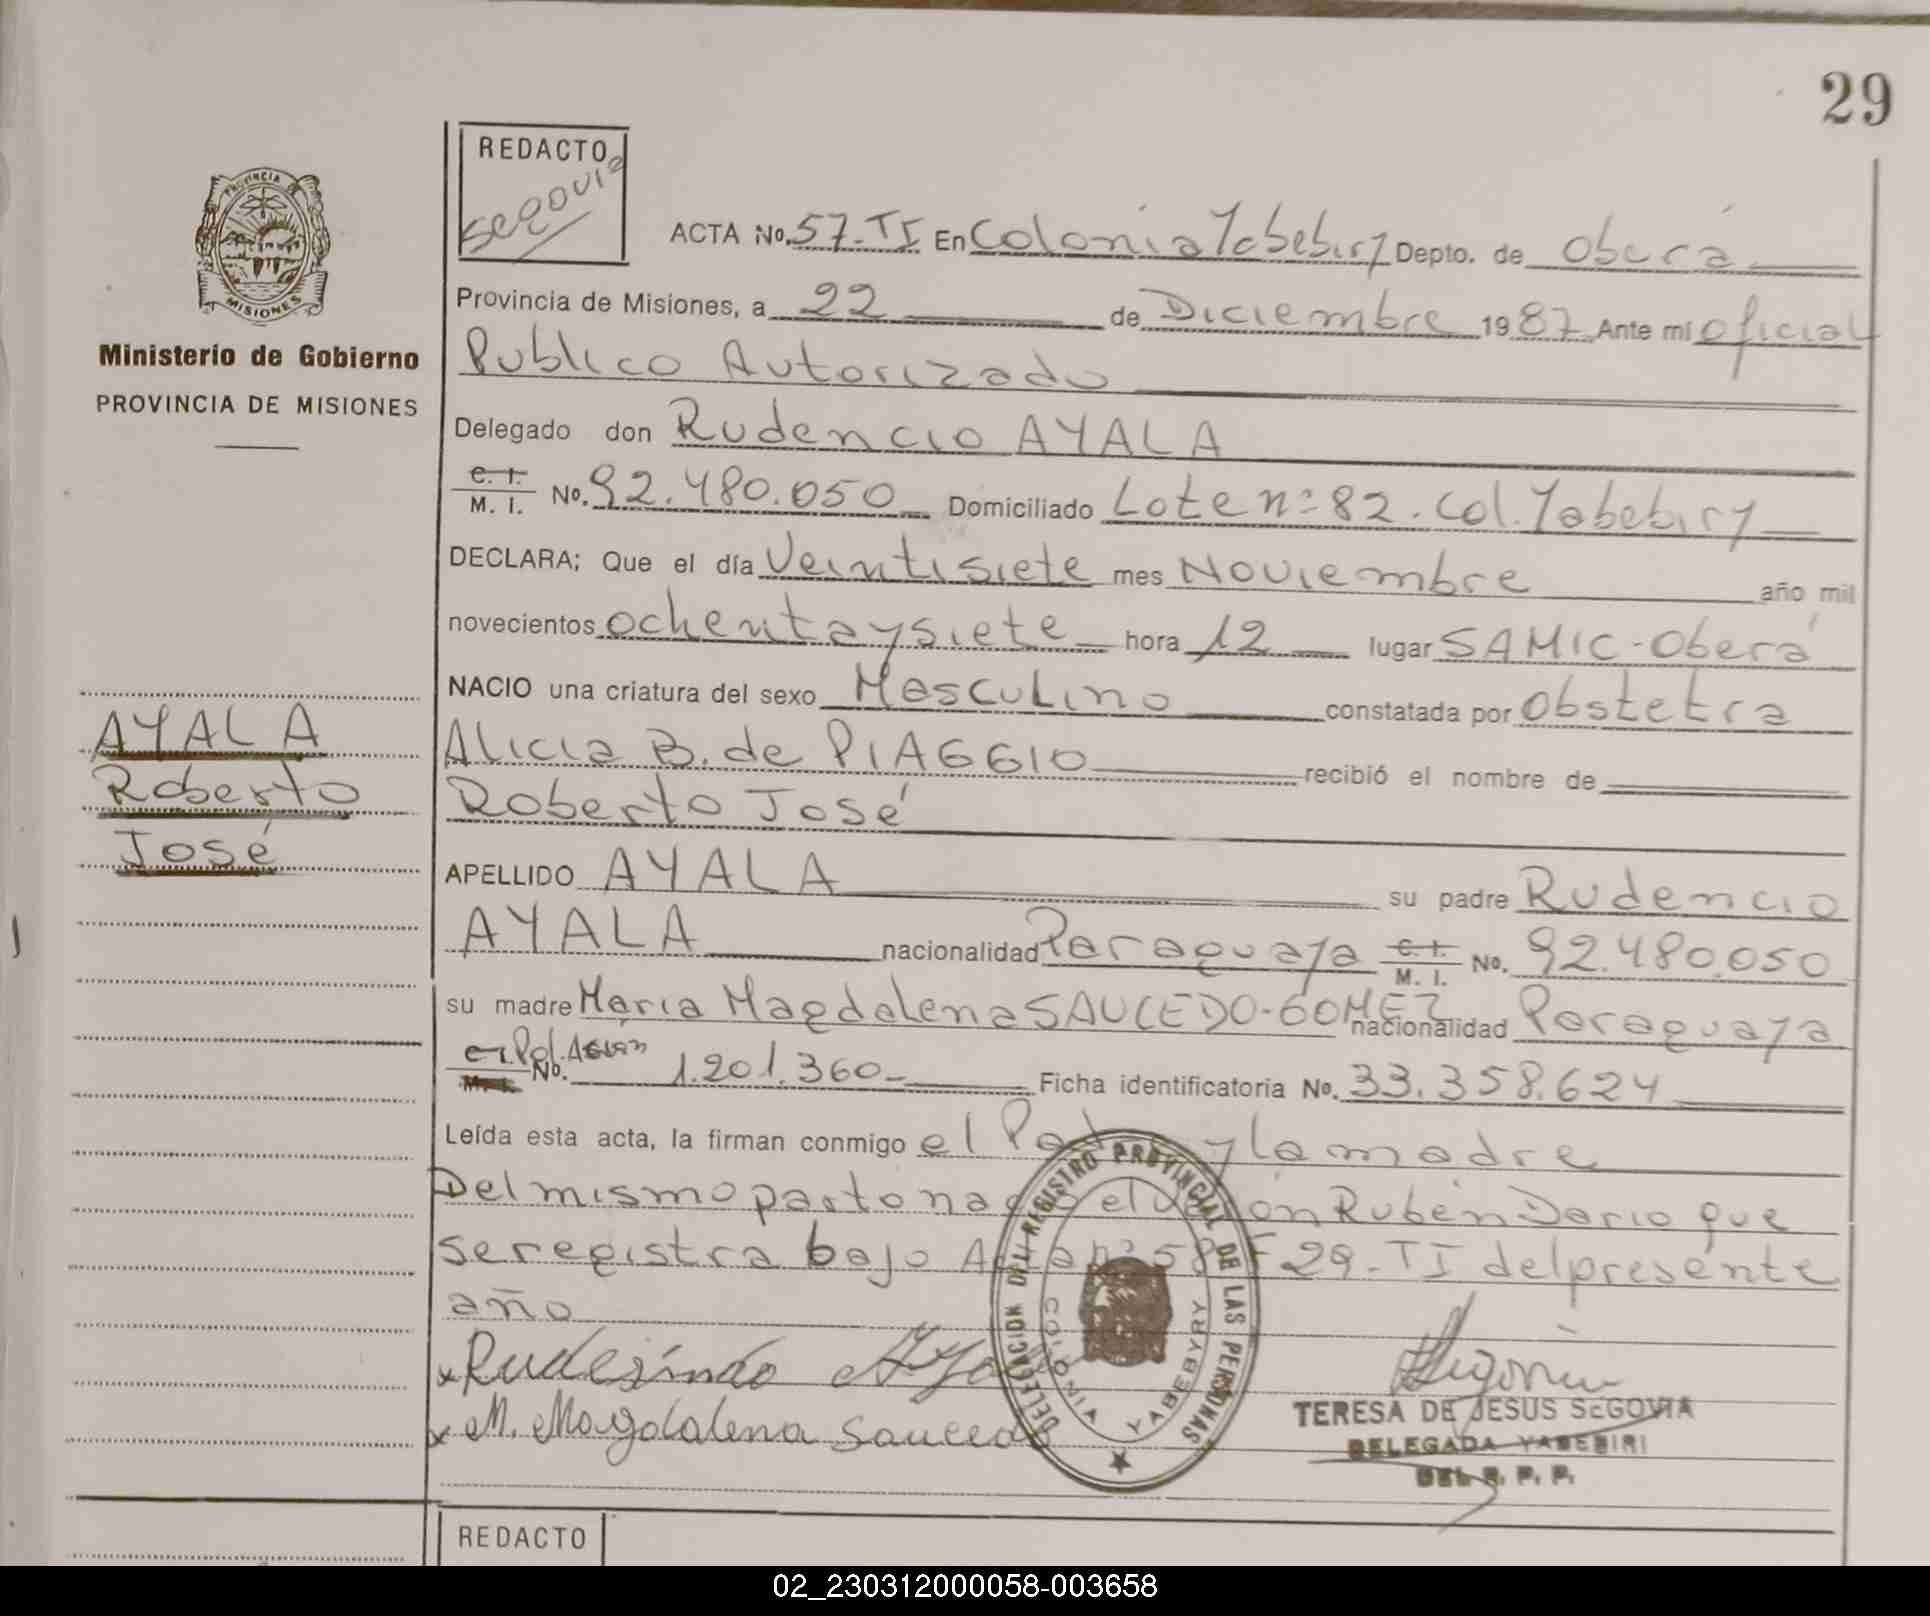 29
REDACTO
Segovia
PROVINCIA DE MISIONES
Ministerio de Gobierno
PROVINCIA DE MISIONES
ACTA No. 57-TI En Colonia Yabebiry Depto. de Oberá
Provincia de Misiones, a 22 de Diciembre 1987 Ante mi Oficial
Publico Autorizado
Delegado don Rudencio AYALA
C. I. M. I. No. 92.480.050 Domiciliado Lote nº 82. Col. Yabebiry
DECLARA; Que el día Veintisiete mes Noviembre año mil
novecientos ochentaysiete hora 12 lugar SAMIC-Oberá
NACIO una criatura del sexo Masculino constatada por Obstetra
Alicia B. de PIAGGIO recibió el nombre de
Roberto José
AYALA
Roberto
José
APELLIDO AYALA su padre Rudencio
AYALA nacionalidad Paraguaya C. I. M. I. No. 92.480.050
su madre María Magdalena SAUCEDO-GOMEZ nacionalidad Paraguaya
C.I. Pol. M. I. No. 1.201.360 Ficha identificatoria No. 33.358.624
Leída esta acta, la firman conmigo el Padre y la madre
Del mismo parto nació el Varón Rubén Dario que
se registra bajo Acta nº 58 F 29-TI del presente
año
Rudesindo Ayala
M. Magdalena Saucedo
DELEGACION DEL REGISTRO PROVINCIAL DE LAS PERSONAS
COLONIA YABEBYRY
TERESA DE JESUS SEGOVIA
DELEGADA YABEBIRI
DEL R. P. P.
REDACTO
02_230312000058-003658